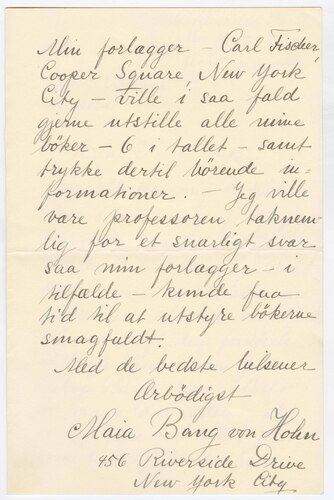 Min forlægger – Carl Fischer,
Cooper Square, New York
City – ville i saa fald
gjerne utstille alle mine
böker – 6 i tallet – samt
trykke dertil hörende in=
formationer. – Jeg ville
være professoren taknem-
lig for et snarligt svar
saa min forlægger – i
tilfælde – kunde faa
tid til at utstyre bökerne
smagfuldt.
Med de bedste hilsener
Arbödigst
Maia Bang von Hohn
456 Riverside Drive
New York City